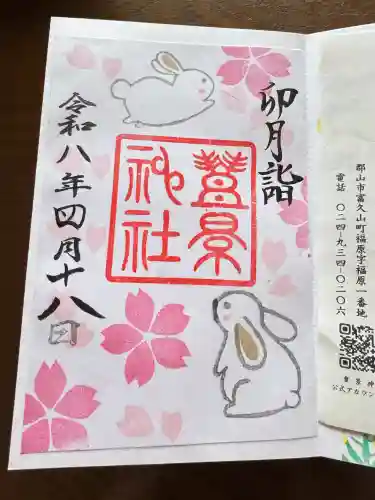 卯月詣
豊景
神社
令和八年四月十八日
郡山市富久山町福原字福原一番地
電話 〇二四-九三四-〇二〇六
豊景神
公式アカウン